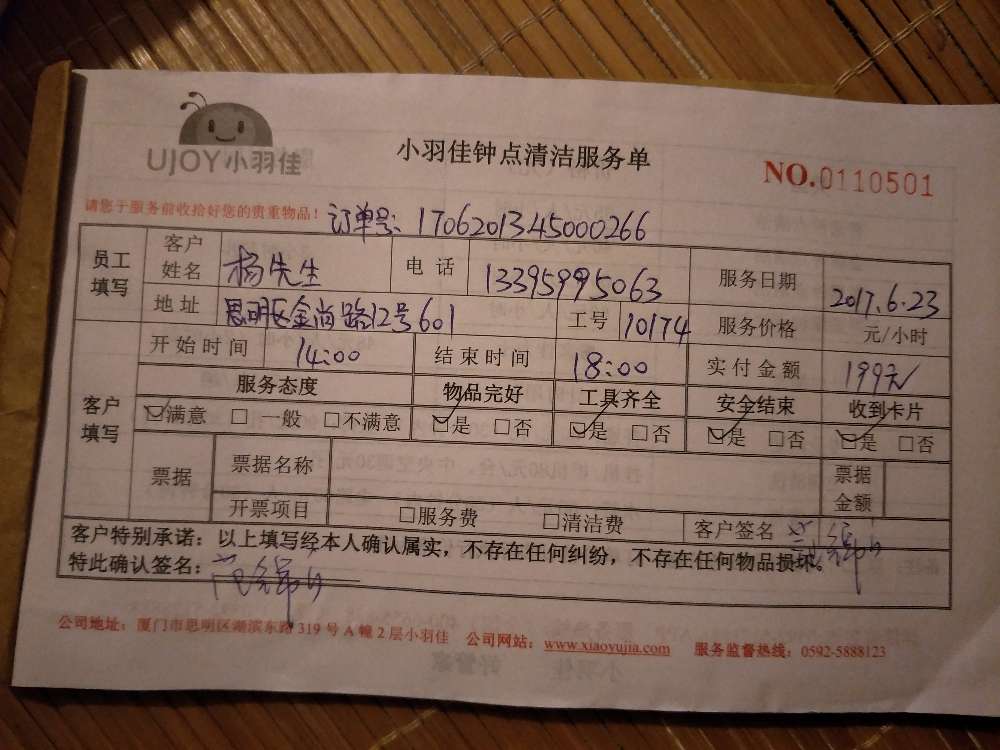 UJOY小羽佳
小羽佳钟点清洁服务单
NO.0110501
请您于服务前收拾好您的贵重物品！ 订单号：1706201345000266
员工填写 客户姓名 杨先生 电话 13395995063 服务日期 2017.6.23
地址 思明区金尚路12号601 工号 10174 服务价格 元/小时
开始时间 14:00 结束时间 18:00 实付金额 199元
客户填写 服务态度 物品完好 工具齐全 安全结束 收到卡片
☑满意 □一般 □不满意 ☑是 □否 ☑是 □否 ☑是 □否 ☑是 □否
票据 票据名称 票据金额
开票项目 □服务费 □清洁费 客户签名
客户特别承诺：以上填写经本人确认属实，不存在任何纠纷，不存在任何物品损坏。
特此确认签名：
公司地址：厦门市思明区湖滨东路319号A幢2层小羽佳 公司网站：www.xiaoyujia.com 服务监督热线：0592-5888123